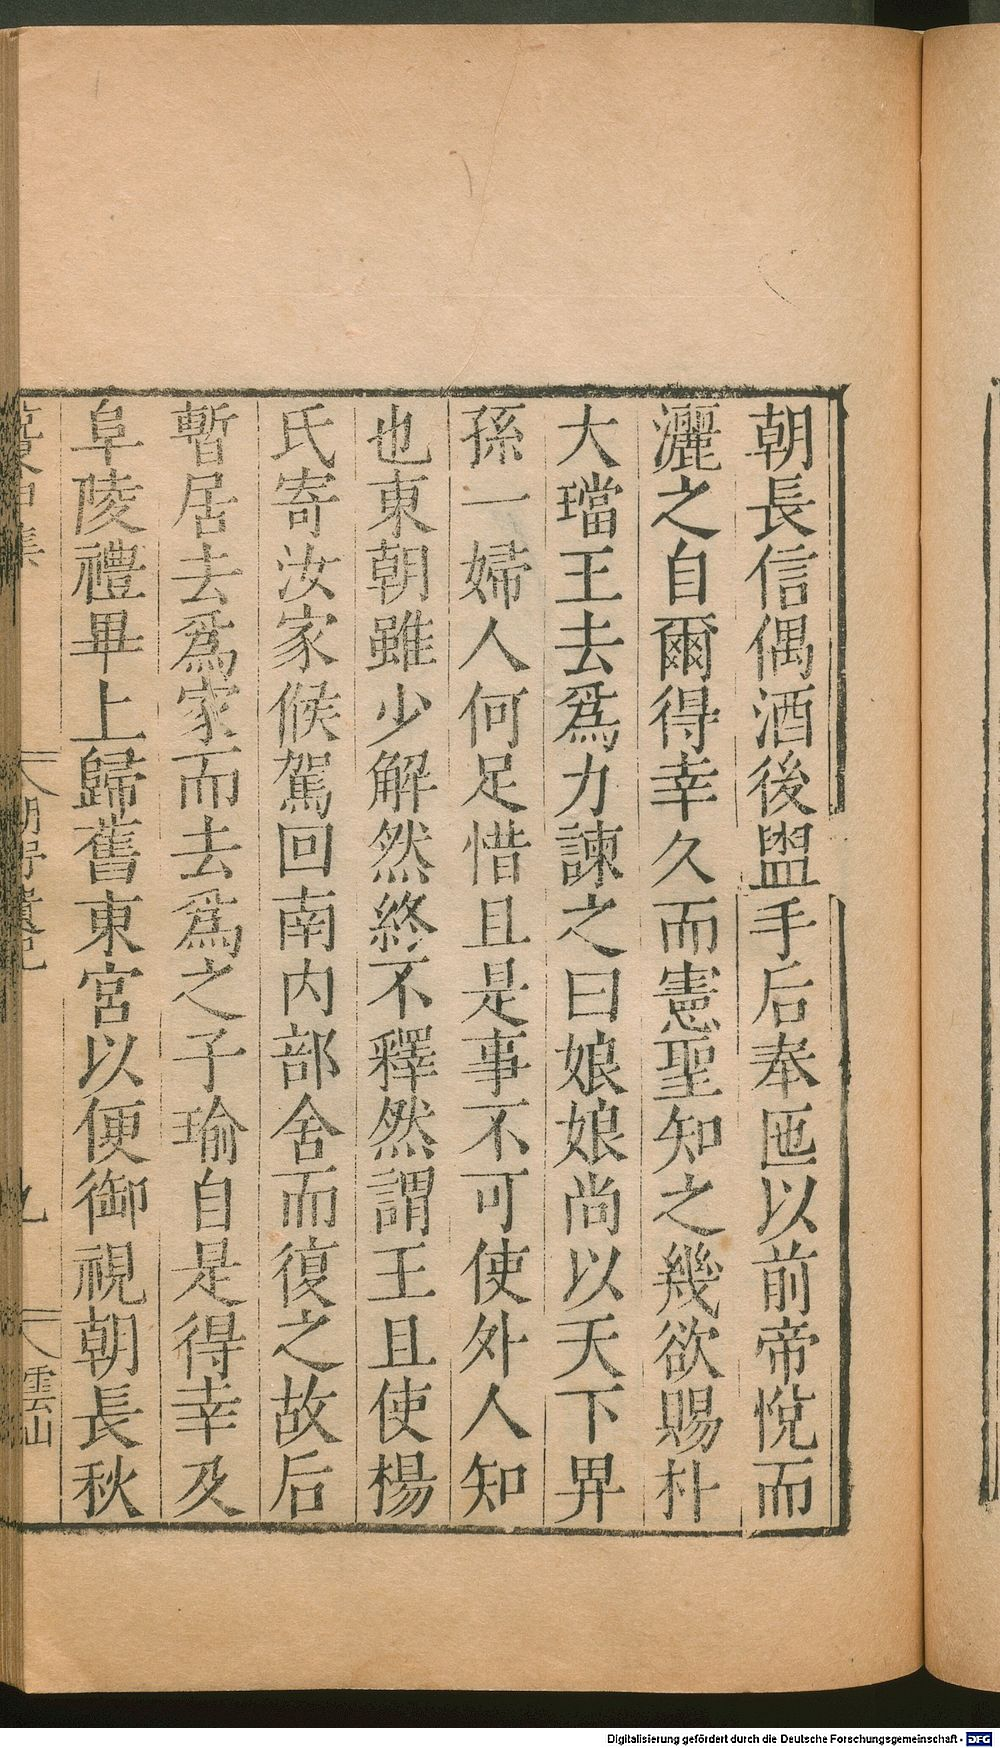 朝長信偶酒後盥手后奉匜以前帝悅而
灑之自爾得幸久而憲聖知之幾欲賜朴
大璫王去爲力諫之曰娘娘尚以天下畀
孫一婦人何足惜且是事不可使外人知
也東朝雖少解然終不釋然謂王且使楊
氏寄汝家候駕回南内部舍而復之故后
暫居去爲家而去爲之子瑜自是得幸及
阜陵禮畢上歸舊東宮以便御視朝長秋
朝野遺記
九
雲山
Digitalisierung gefördert durch die Deutsche Forschungsgemeinschaft - DFG